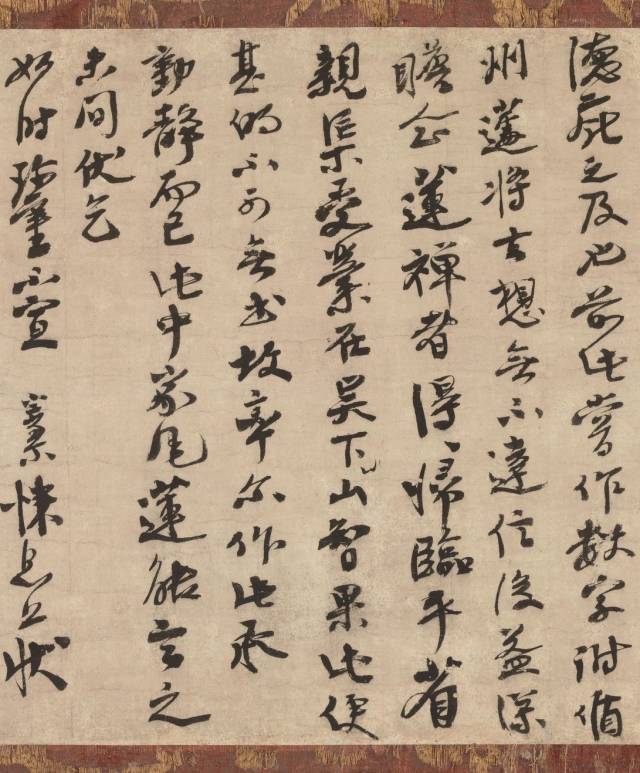 德之及也前此嘗作數字附循
州蓮將去想無不達信後益深
瞻企蓮禪者得得歸臨平省
親渠受業在吳下山智果此便
甚的不可無書故率尔作此承
動靜而已此中家風蓮能言之
未間伏乞
如時珍重不宣 悚息上狀